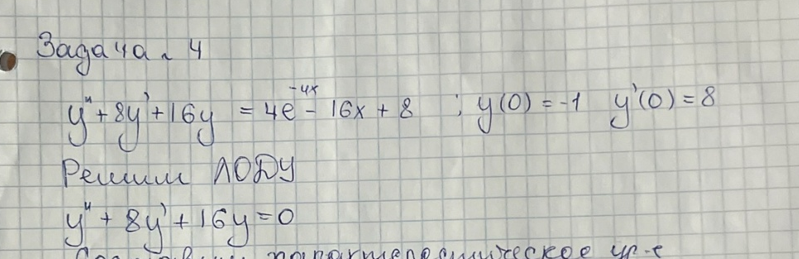 Задача 4
y'' + 8y' + 16y = 4e^{-4x} - 16x + 8 ; y(0) = -1 y'(0) = 8
Решим ЛОДУ
y'' + 8y' + 16y = 0
ур-е